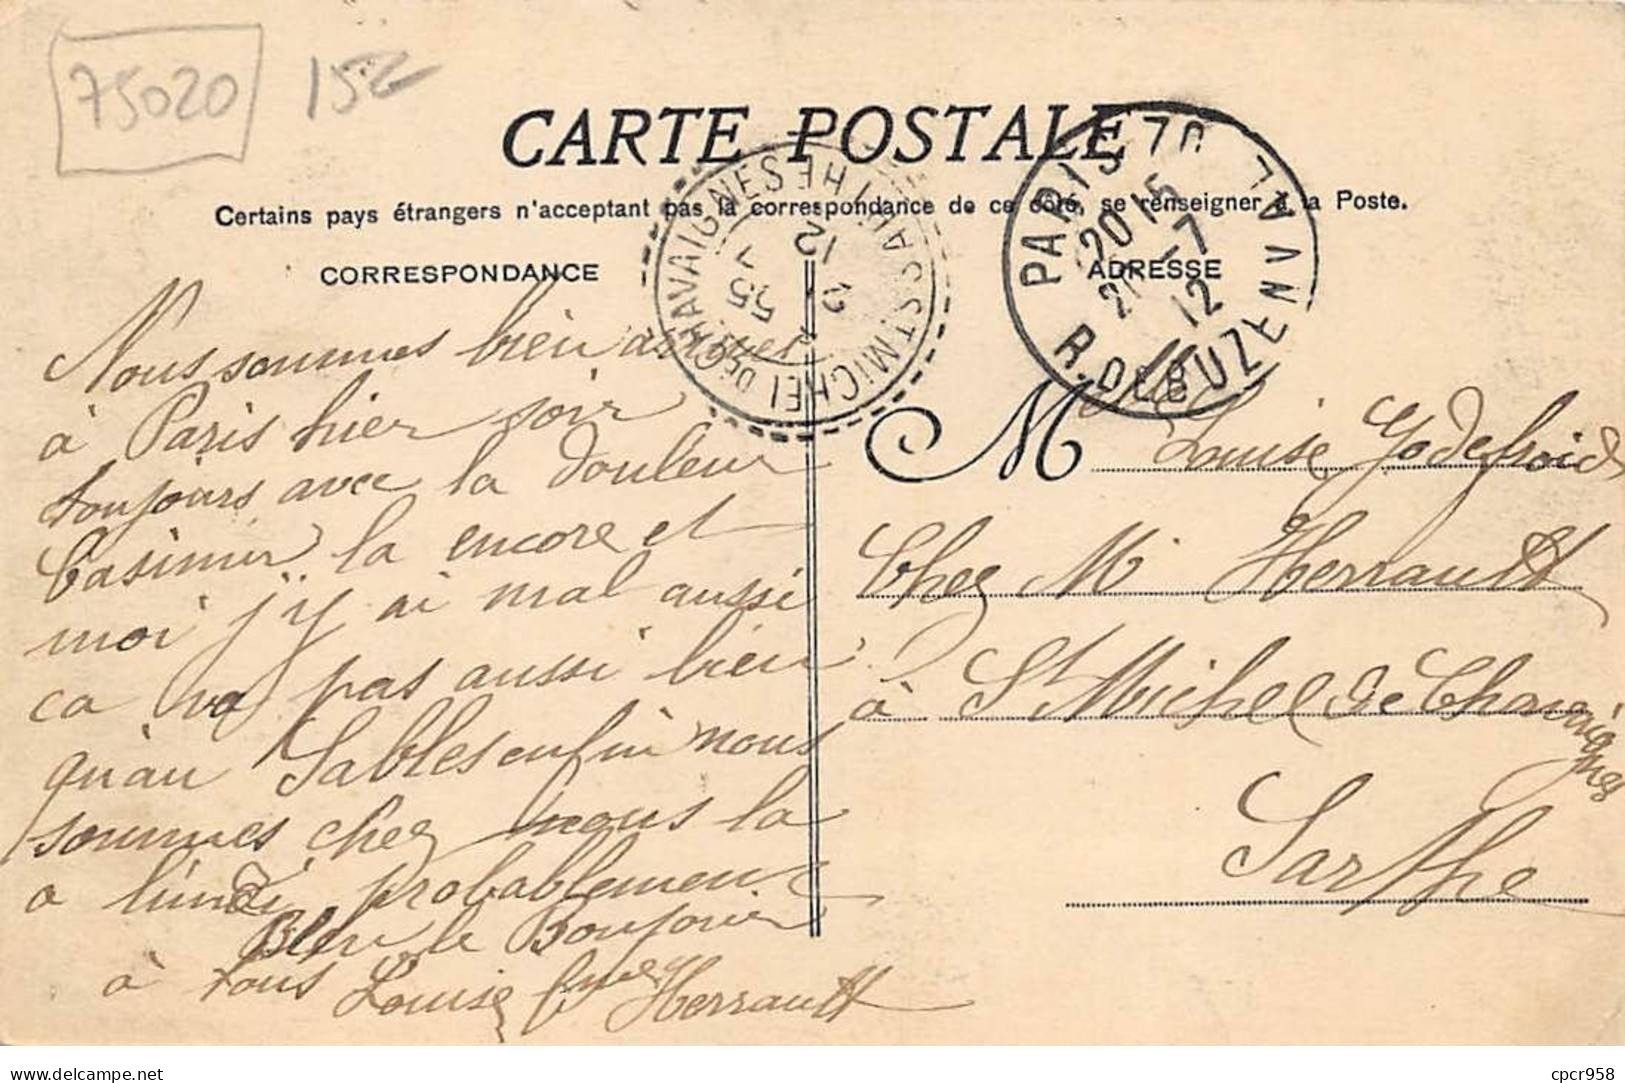 75020 15€
CARTE POSTALE
Certains pays étrangers n'acceptant pas la correspondance de ce côté, se renseigner à la Poste.
CORRESPONDANCE
ADRESSE
PARIS
20 15
7
12
R. DUBUZENVAL
ST MICHEL DE CHAVAIGNES
SARTHE
12
Nous sommes bien arrivés
à Paris hier soir
toujours avec la douleur
Casimir la encore et
moi j'y ai mal aussi
ca va pas aussi bien
qu'au Sables enfin nous
sommes chez nous la
a lundi probablement
Bien le Bonjour
à tous Louise Herrault
M Louise Godefroid
Chez Mr Herrault
à St Michel de Chavaignes
Sarthe
delcampe.net
cpcr958